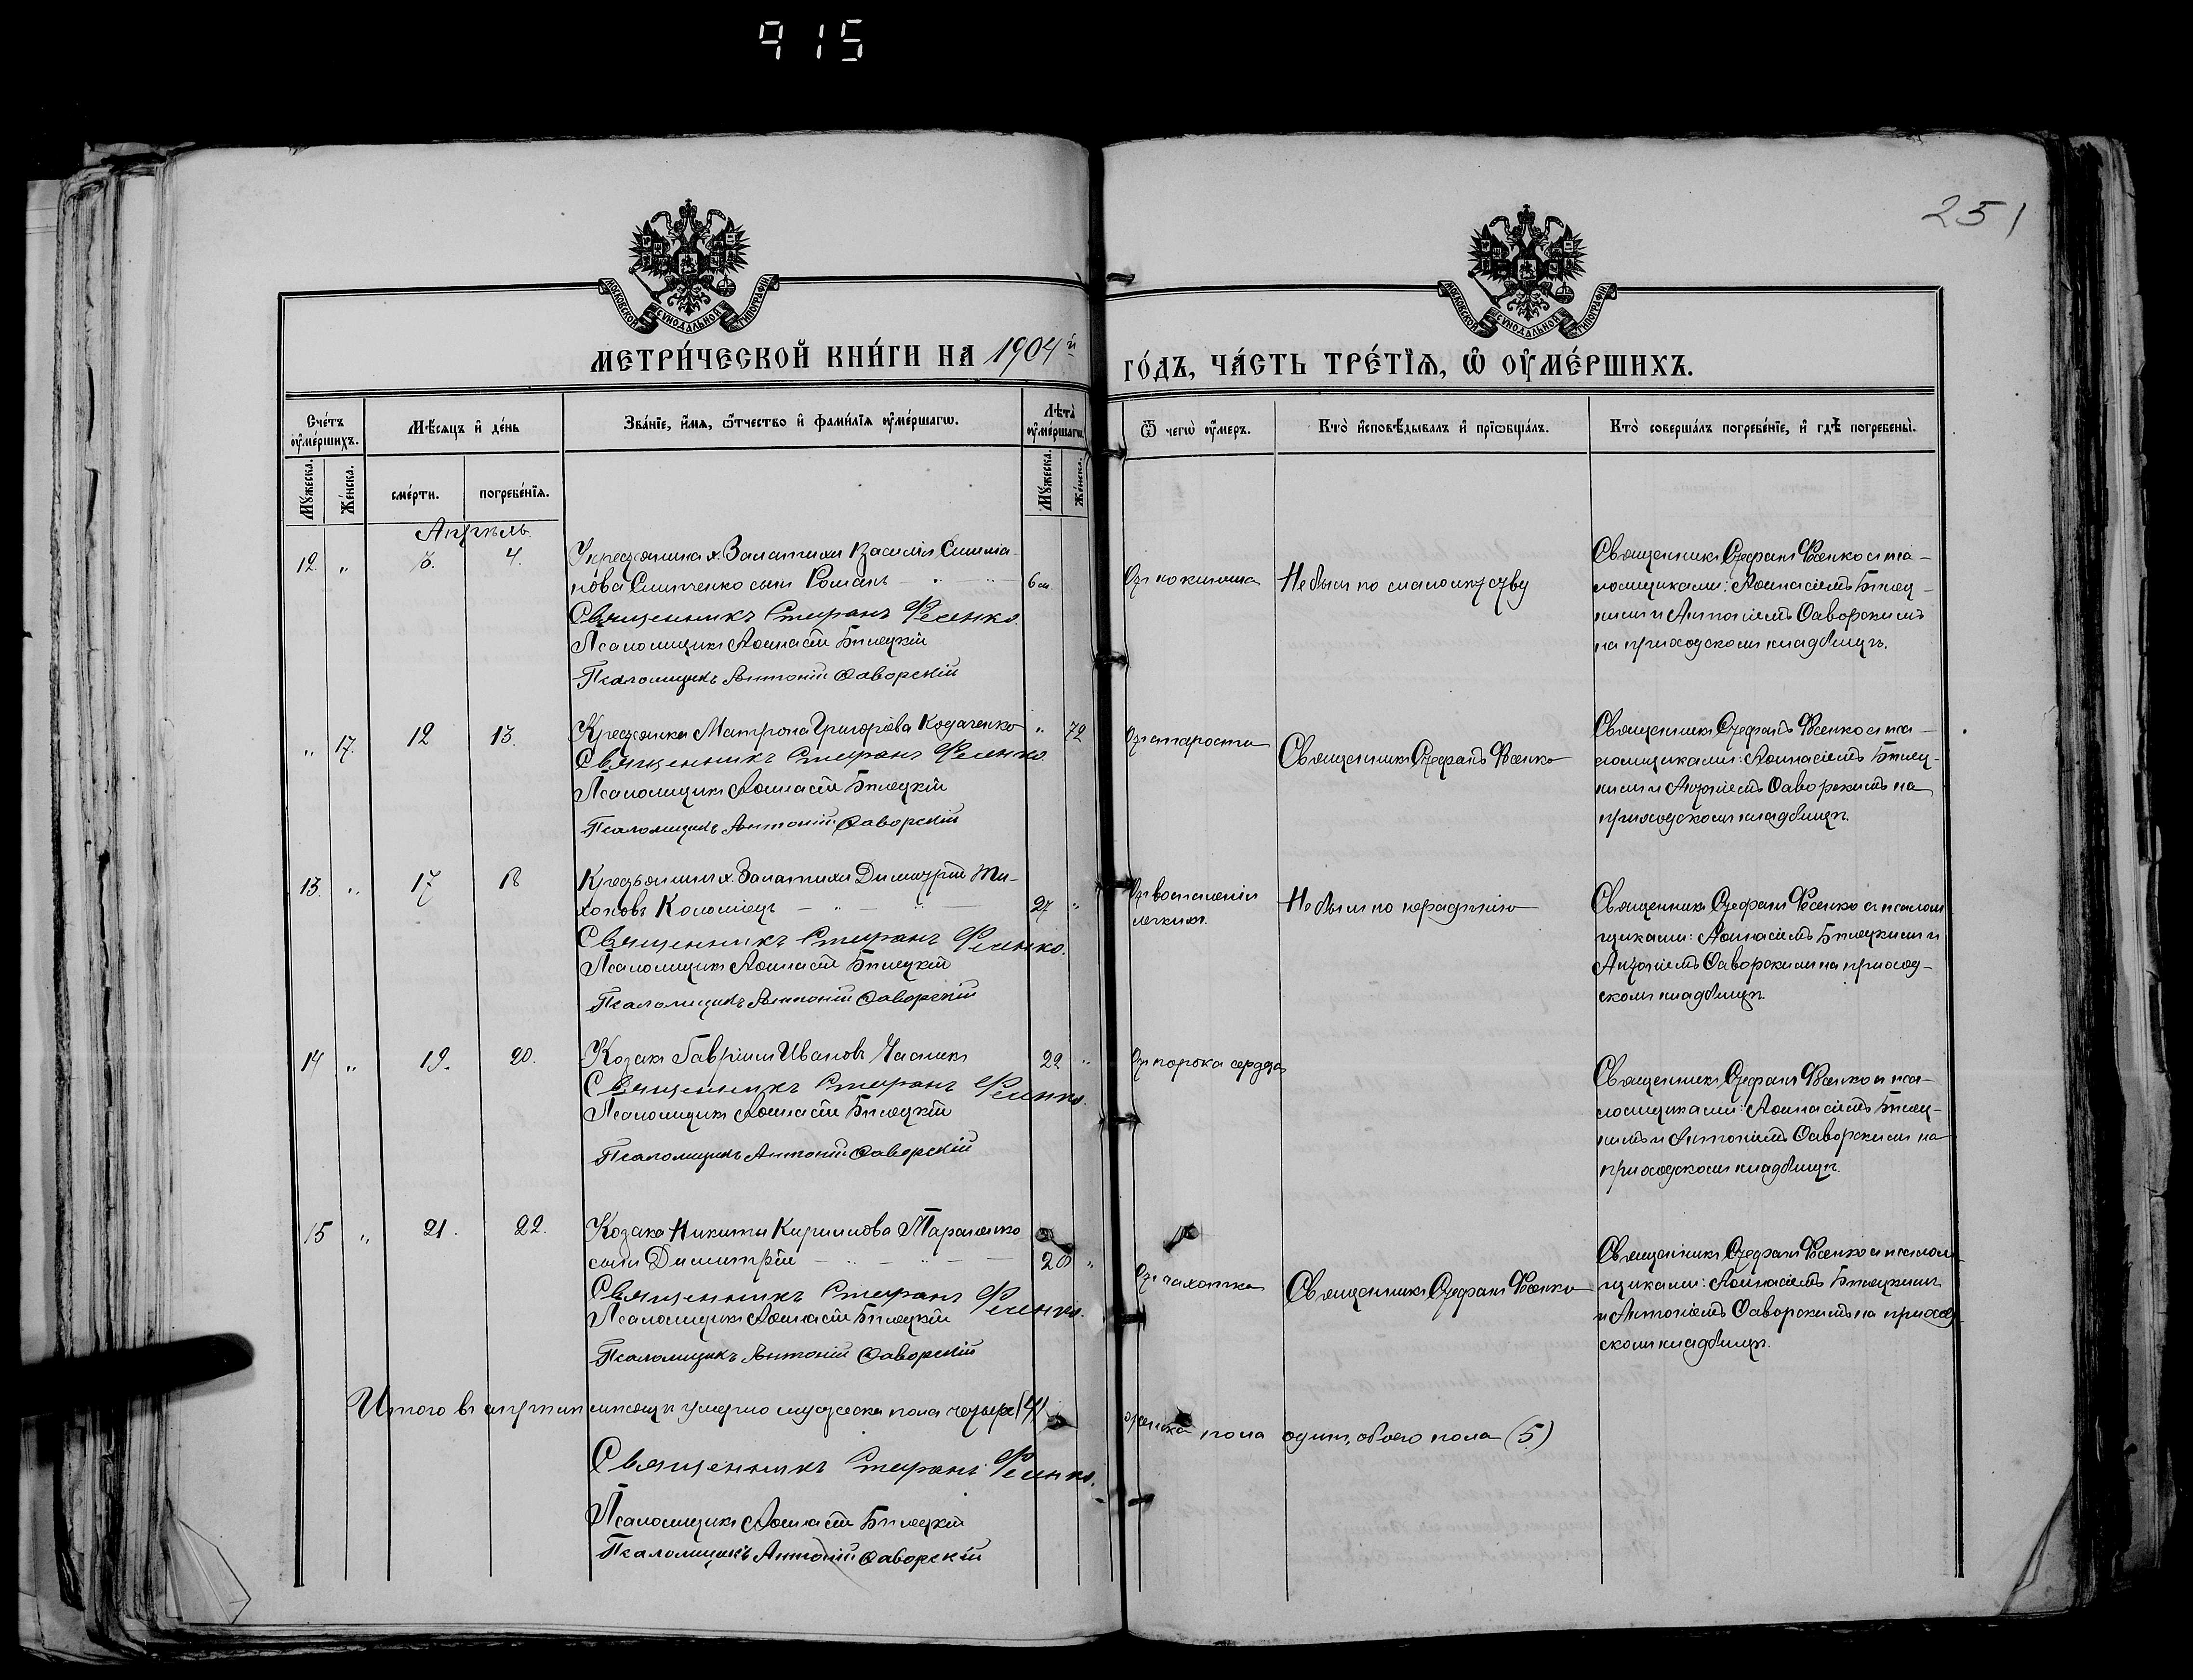 915
251
МОСКОВСКОЙ СУНОДАЛЬНОЙ ТИПОГРАФІИ
МОСКОВСКОЙ СУНОДАЛЬНОЙ ТИПОГРАФІИ
МЕТРИ́ЧЕСКОЙ КНИ́ГИ НА 1904й
ГО́ДЪ, ЧА́СТЬ ТРЕ́ТЇѦ, Ѡ҆ ОУ҆МЕ́РШИХЪ.
Сче́тъ оу҆ме́ршихъ.
Мѣ́сяцъ и҆ де́нь
Зва́нїе, и҆́мѧ, ѻ҆́тчество и҆ фами́лїѧ оу҆ме́ршагѡ.
Лѣта̀ оу҆ме́ршагѡ.
Ѿ чегѡ̀ оу҆́меръ.
Кто̀ и҆сповѣ́дывалъ и҆ прїѡбща́лъ.
Кто̀ соверша́лъ погребе́нїе, и҆ гдѣ̀ погребены̀.
Мꙋ́жеска.
Же́нска.
сме́рти.
погребе́нїѧ.
Мꙋ́жеска.
Же́нска.
Апрѣль.
12. „ 3. 4.
У крестьянина х. Василія
нова сынъ Романъ 6 м.
Священникъ Стефанъ Фесенко.
Псаломщикъ Аѳанасій Бѣлецкій
Псаломщикъ Антоній Ѳаворскій
Отъ коклюша
Не былъ по малолѣтству
Священникъ Стефанъ Фесенко съ пса-
ломщиками: Аѳанасіемъ Бѣлец-
кимъ и Антоніемъ Ѳаворскимъ
на приходскомъ кладбищѣ.
„ 17. 12 13.
Крестьянка Матрона Григорьева Козаченко „ 72
Священникъ Стефанъ Фесенко.
Псаломщикъ Аѳанасій Бѣлецкій
Псаломщикъ Антоній Ѳаворскій
Отъ старости
Священникъ Стефанъ Фесенко
Священникъ Стефанъ Фесенко съ пса-
ломщиками: Аѳанасіемъ Бѣлец-
кимъ и Антоніемъ Ѳаворскимъ на
приходскомъ кладбищѣ.
13. „ 17 18
Крестьянинъ х. Димитрій Ти-
хоновъ Коломіецъ 27 „
Священникъ Стефанъ Фесенко.
Псаломщикъ Аѳанасій Бѣлецкій
Псаломщикъ Антоній Ѳаворскій
Отъ воспаленія
легкихъ.
Не былъ по нерадѣнію
Священникъ Стефанъ Фесенко съ псалом
щиками: Аѳанасіемъ Бѣлецкимъ и
Антоніемъ Ѳаворскимъ на приход-
скомъ кладбищѣ.
14 „ 19. 20.
Козакъ Гавріилъ Ивановъ 22 „
Священникъ Стефанъ Фесенко.
Псаломщикъ Аѳанасій Бѣлецкій
Псаломщикъ Антоній Ѳаворскій
Отъ порока сердца
Священникъ Стефанъ Фесенко съ пса-
ломщиками: Аѳанасіемъ Бѣлец-
кимъ и Антоніемъ Ѳаворскимъ на
приходскомъ кладбищѣ.
15 „ 21. 22.
Козака Никиты Кириллова
сынъ Димитрій „
Священникъ Стефанъ Фесенко.
Псаломщикъ Аѳанасій Бѣлецкій
Псаломщикъ Антоній Ѳаворскій
Отъ чахотки
Священникъ Стефанъ Фесенко
Священникъ Стефанъ Фесенко съ псалом-
щиками: Аѳанасіемъ Бѣлецкимъ
и Антоніемъ Ѳаворскимъ на приход-
скомъ кладбищѣ.
Итого въ апрѣлѣ мѣсяцѣ умерло мужеска пола четыре (4)
женска пола одинъ, обоего пола (5)
Священникъ Стефанъ Фесенко.
Псаломщикъ Аѳанасій Бѣлецкій
Псаломщикъ Антоній Ѳаворскій